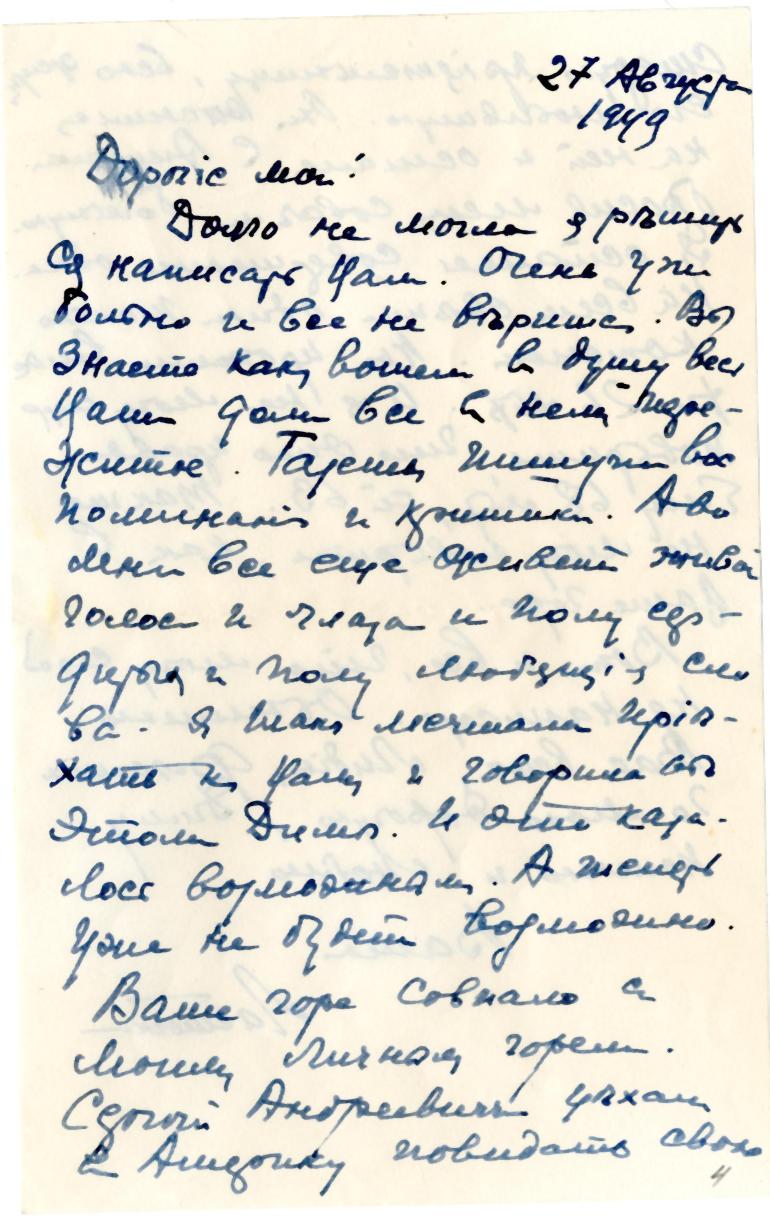 27 Августа
1949
Дорогіе мои!
Долго не могла я рѣшить
ся написать Вамъ. Очень ужъ
больно и все не вѣрится. Вы
знаете какъ вошелъ въ душу весь
Вашъ домъ все въ немъ пере-
житое. Газеты пишутъ вос
поминанія и критики. А во
мнѣ все еще живетъ живой
голосъ и глаза и полу сер-
дитыя и полу любящія сло
ва. Я такъ мечтала пріѣ-
хать къ Вамъ и говорила объ
этомъ Димѣ. И это каза-
лось возможнымъ. А теперь
уже не будетъ возможно.
Ваше горе совпало съ
моимъ личнымъ горемъ.
Сергѣй Андреевичъ уѣхалъ
въ повидать свою
4